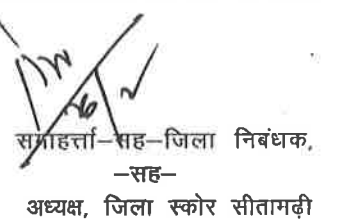 समाहर्त्ता–सह–जिला निबंधक,
–सह–
अध्यक्ष, जिला स्कोर सीतामढ़ी